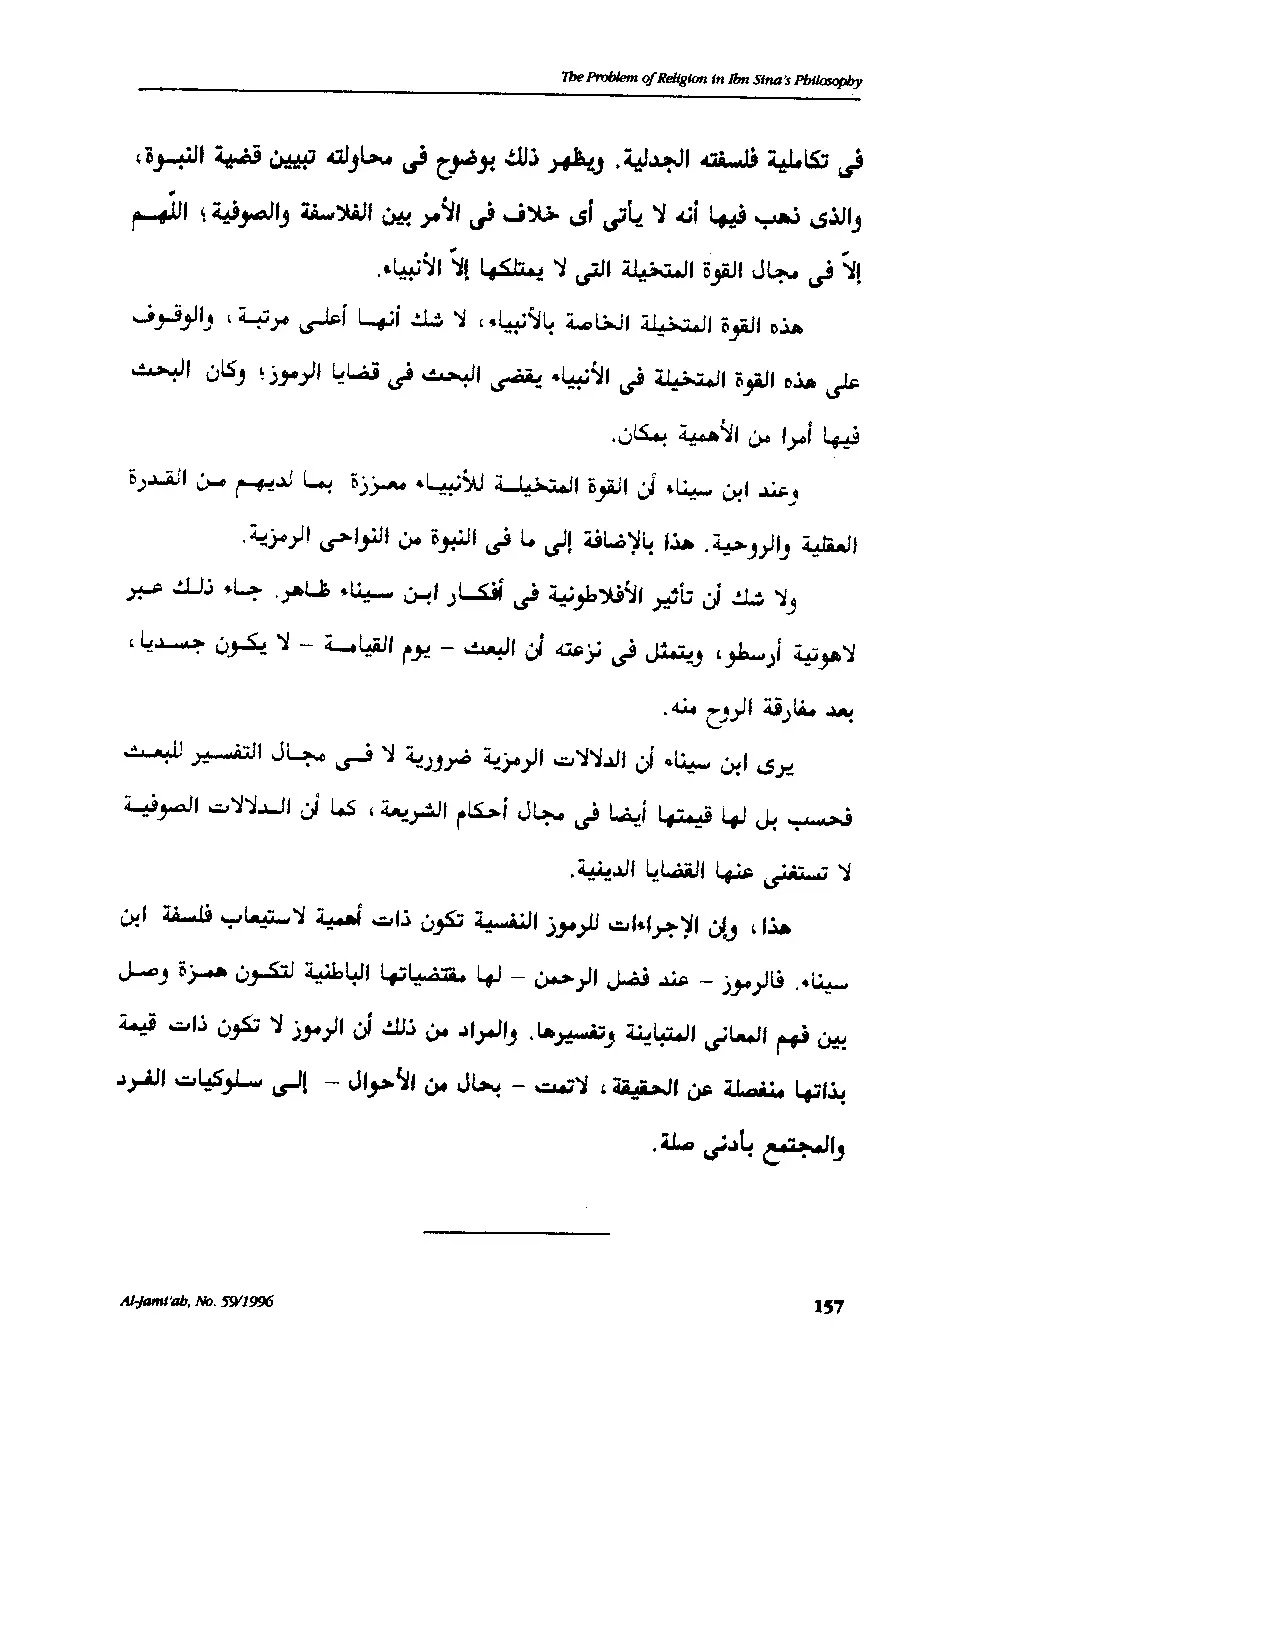 The Problem of Religion in Ibn Sina's Philosophy
فى تكاملية فلسفته الجدلية. ويظهر ذلك بوضوح فى محاولته تبيين قضية النبوة،
والذى ذهب فيها أنه لا يأتى أى خلاف فى الأمر بين الفلاسفة والصوفية؛ اللّهم
إلاّ فى مجال القوة المتخيلة التى لا يمتلكها إلاّ الأنبياء.
هذه القوة المتخيلة الخاصة بالأنبياء، لا شك أنها أعلى مرتبة، والوقوف
على هذه القوة المتخيلة فى الأنبياء يقضى البحث فى قضايا الرموز؛ وكان البحث
فيها أمرا من الأهمية بمكان.
وعند ابن سيناء أن القوة المتخيلة للأنبياء معززة بما لديهم من القدرة
العقلية والروحية. هذا بالإضافة إلى ما فى النبوة من النواحى الرمزية.
ولا شك أن تأثير الأفلاطونية فى أفكار ابن سيناء ظاهر. جاء ذلك عبر
لاهوتية أرسطو، ويتمثل فى نزعته أن البعث – يوم القيامة – لا يكون جسديا،
بعد مفارقة الروح منه.
يرى ابن سيناء أن الدلالات الرمزية ضرورية لا فى مجال التفسير للبعث
فحسب بل لها قيمتها أيضا فى مجال أحكام الشريعة، كما أن الدلالات الصوفية
لا تستغنى عنها القضايا الدينية.
هذا، وإن الإجراءات للرموز النفسية تكون ذات أهمية لاستيعاب فلسفة ابن
سيناء. فالرموز – عند فضل الرحمن – لها مقتضياتها الباطنية لتكون همزة وصل
بين فهم المعانى المتباينة وتفسيرها. والمراد من ذلك أن الرموز لا تكون ذات قيمة
بذاتها منفصلة عن الحقيقة، لاتمت – بحال من الأحوال – إلى سلوكيات الفرد
والمجتمع بأدنى صلة.
Al-Jami'ah, No. 59/1996
157